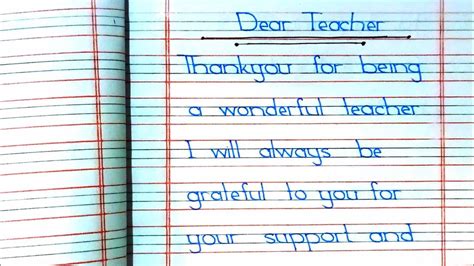 Dear Teacher
Thankyou for being
a wonderful teacher
I will always be
grateful to you for
your support and